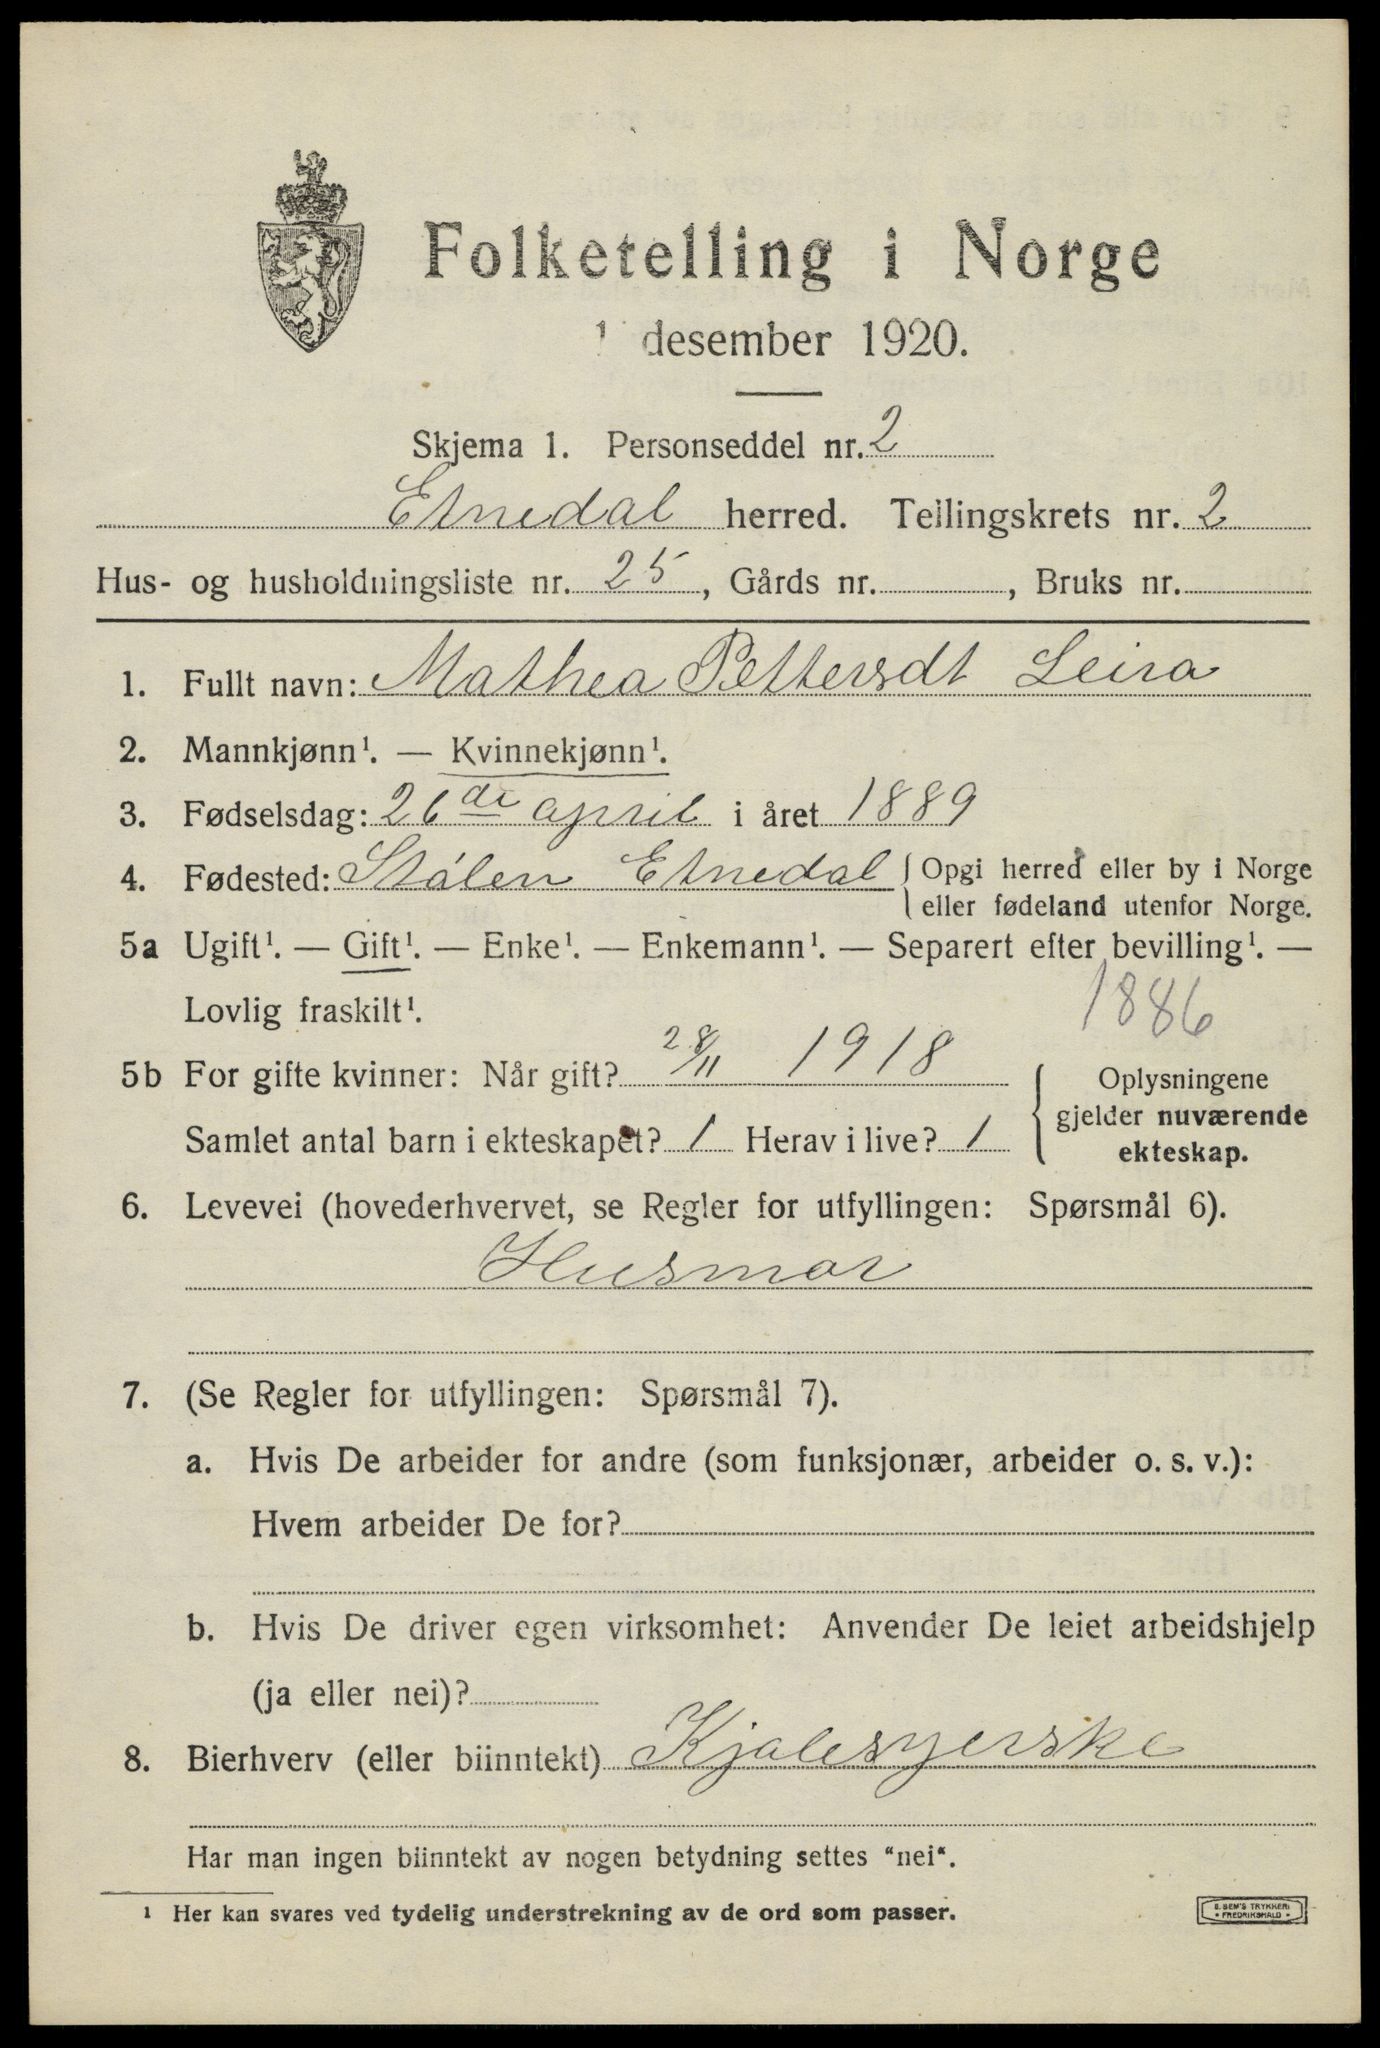 Folketelling i Norge
1 desember 1920.
Skjema 1. Personseddel nr. 2
Etnedal herred. Tellingskrets nr. 2
Hus- og husholdningsliste nr. 25, Gårds nr. , Bruks nr.
1. Fullt navn: Mathea Pettersdt Leira
2. Mannkjønn¹. — Kvinnekjønn¹.
3. Fødselsdag: 26de april i året 1889
4. Fødested: Stålen Etnedal { Opgi herred eller by i Norge
eller fødeland utenfor Norge.
5a Ugift¹. — Gift¹. — Enke¹. — Enkemann¹. — Separert efter bevilling¹. —
Lovlig fraskilt¹. 1886
5b For gifte kvinner: Når gift? 28/11 1918
Samlet antal barn i ekteskapet? 1 Herav i live? 1
{ Oplysningene
gjelder nuværende
ekteskap.
6. Levevei (hovederhvervet, se Regler for utfyllingen: Spørsmål 6).
Husmor
7. (Se Regler for utfyllingen: Spørsmål 7).
a. Hvis De arbeider for andre (som funksjonær, arbeider o. s. v.):
Hvem arbeider De for?
b. Hvis De driver egen virksomhet: Anvender De leiet arbeidshjelp
(ja eller nei)?
8. Bierhverv (eller biinntekt) Kjolesyerske
Har man ingen biinntekt av nogen betydning settes "nei".
¹ Her kan svares ved tydelig understrekning av de ord som passer.
E. SEM'S TRYKKERI
• FREDRIKSHALD •